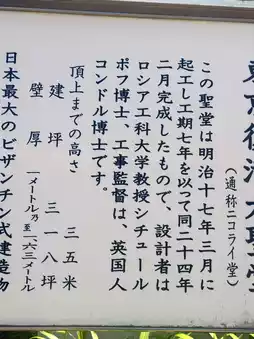 東京復活大聖堂
(通称ニコライ堂)
この聖堂は明治十七年三月に
起工し工期七年を以って同二十四年
二月完成したもので、設計者は
ロシア工科大学教授シチュール
ポフ博士、工事監督は、英国人
コンドル博士です。
頂上までの高さ 三五米
建坪 三一八坪
壁厚 一メートル乃至一・六三メートル
日本最大のビザンチン式建造物